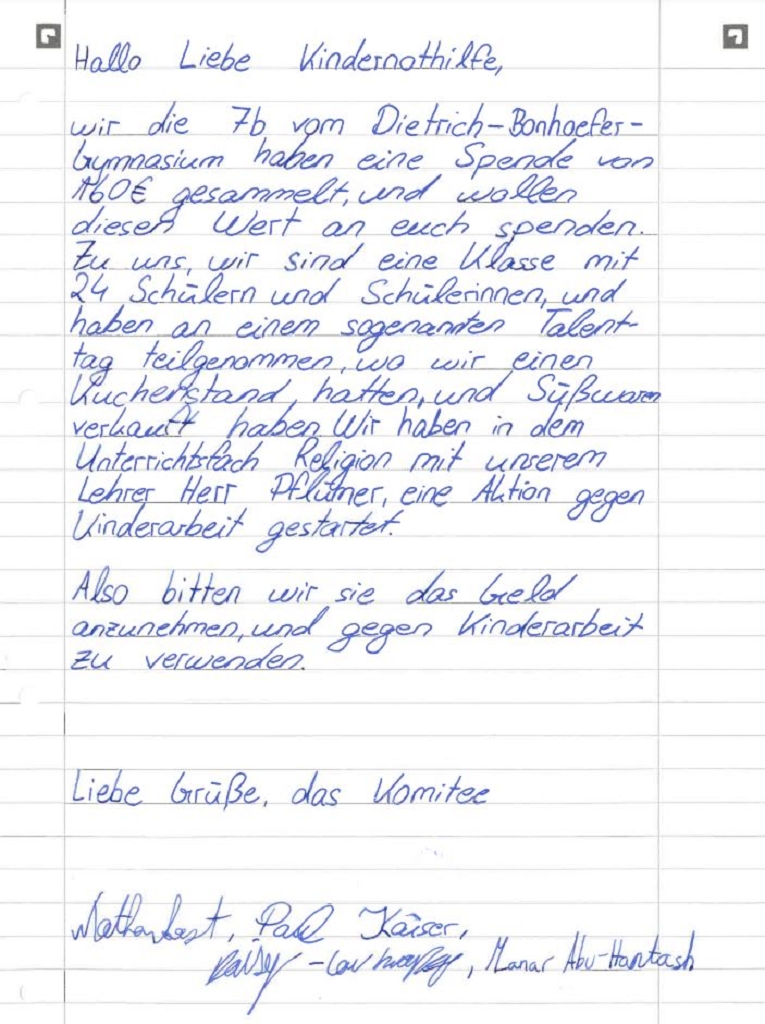 Hallo Liebe Kindernothilfe,
wir die 7b vom Dietrich-Bonhoefer-
Gymnasium haben eine Spende von
160€ gesammelt, und wollen
diesen Wert an euch spenden.
Zu uns, wir sind eine Klasse mit
24 Schülern und Schülerinnen, und
haben an einem sogenannten Talent-
tag teilgenommen, wo wir einen
Kuchenstand, hatten, und Süßwaren
verkauft haben. Wir haben in dem
Unterrichtsfach Religion mit unserem
Lehrer Herr, eine Aktion gegen
Kinderarbeit gestartet.
Also bitten wir sie das Geld
anzunehmen, und gegen Kinderarbeit
zu verwenden.
Liebe Grüße, das Komitee
Paul Kaiser,
Manar Abu-Hantash